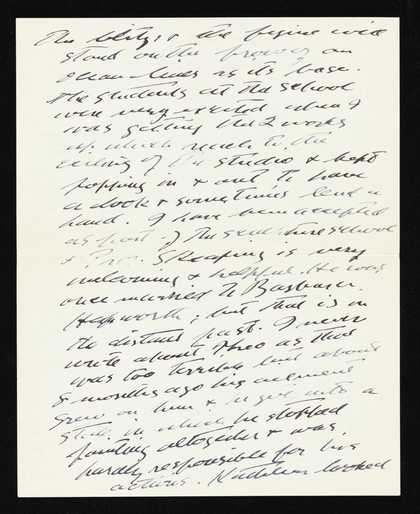 The lily & the figure will
stand on the prow of an
ocean liner as its base.
The students at the school
were very excited when I
was getting the 2 works
up which reach to the
ceiling of the studio & kept
popping in & out to have
a look & sometimes lend a
hand. I have been accepted
as part of the sculpture school
& Prof. Skeaping is very
welcoming & helpful. He was
once married to Barbara
Hepworth; but that is in
the distant past. I never
write about Theo as that
was too terrible but about
8 months ago his ailment
grew on him & into a
state in which he stopped
painting altogether & was
hardly responsible for his
actions. Kathleen looked